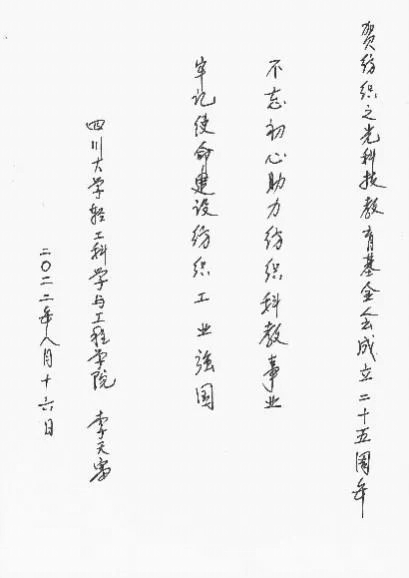 贺纺织之光科技教育基金会成立二十五周年
不忘初心助力纺织科教事业
牢记使命建设纺织工业强国
四川大学轻工科学与工程学院 李天富
二〇二二年八月十六日